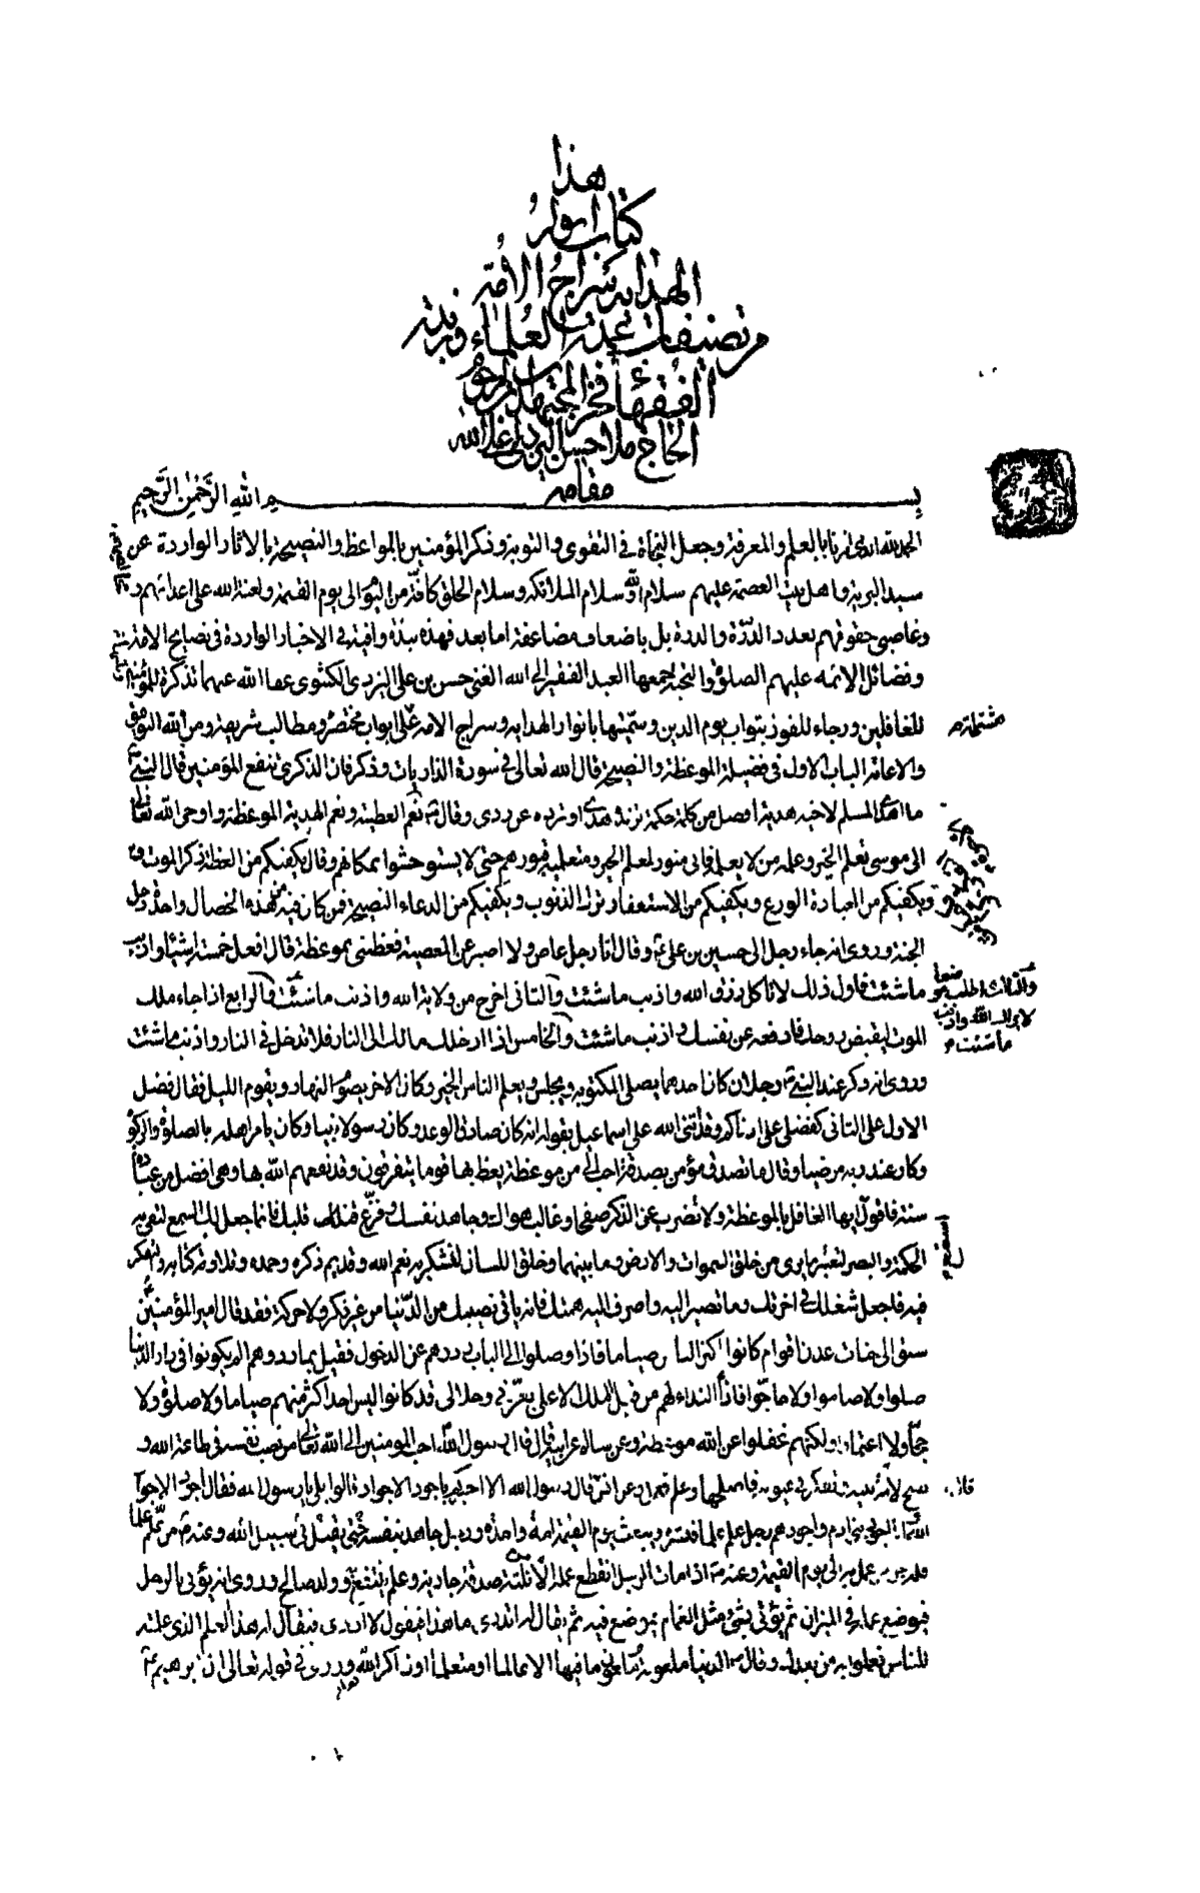 هذا
كتاب انوار
الهدايه سراج الامة
من تصنيفات عمدة العلماء وزبدة
الفقهاء فخر المجتهدين المرحوم
الحاج ملا حسن اليزدي اعلى الله
مقامه
بسم الله الرحمن الرحيم
الحمد لله الذى زيننا بالعلم والمعرفة وجعل النجاة فى التقوى والتوبة وذكر المؤمنين بالمواعظ والنصيحة بالاثار الواردة عن
سيد البرية واهل بيت العصمة عليهم سلام الله وسلام الملائكة وسلام الخلق كافة من اليوم الى يوم القيمة ولعنة الله على اعدائهم
وغاصبى حقوقهم بعدد الذرة والذرة بل باضعاف مضاعفة اما بعد فهذه نبذة وافية فى الاخبار الواردة فى نصايح الامة
وفضائل الائمه عليهم الصلوة والتحية جمعها العبد الفقير الى الله الغنى حسن بن على اليزدى الكثنوى عفا الله عنهما تذكرة للمؤمنين
للغافلين ورجاء للفوز بثواب يوم الدين وسميتها بانوار الهدايه وسراج الامه على ابواب مختصرة ومطالب شريفة ومن الله التوفيق
مشتملة
والاعانة الباب الاول فى فضيلة الموعظة والنصيحة قال الله تعالى فى سورة الذاريات وذكر فان الذكرى تنفع المؤمنين قال النبى
ما اهدى المسلم لاخيه هدية افضل من كلمة حكمة تزيده هدى او ترده عن ردى وقال نعم العطية ونعم الهدية الموعظة واوحى الله تعالى
الى موسى تعلم الخير وعلمه من لا يعلمه فانى منور لمعلم الخير ومتعلميه قبورهم حتى لا يستوحشوا بمكانهم وقال يكفيكم من العظة ذكر الموت
ويكفيكم من العبادة الورع ويكفيكم من الاستغفار ترك الذنوب ويكفيكم من الدعاء النصيحة فمن كان فيه من هذه الخصال واحدة دخل
الجنة وروى انه جاء رجل الى حسين بن على وقال انا رجل عاص ولا اصبر عن المعصية فعظنى بموعظة قال افعل خمسة اشياء واذنب
ما شئت فاول ذلك لا تاكل رزق الله واذنب ما شئت والثانى اخرج من ولاية الله واذنب ما شئت والرابع اذا جاء ملك
والثالث اطلب موضعا
لا يراك الله واذنب
ما شئت
الموت ليقبض روحك فادفعه عن نفسك واذنب ما شئت والخامس اذا ادخلك مالك الى النار فلا تدخل فى النار واذنب ما شئت
وروى انه ذكر عند النبى رجلان كان احدهما يصلى المكتوبة ويجلس ويعلم الناس الخير وكان الاخر يصوم النهار ويقوم الليل فقال فضل
الاول على الثانى كفضلى على ادناكم وقد اثنى الله على اسماعيل بقوله انه كان صادق الوعد وكان رسولا نبيا وكان يامر اهله بالصلوة والزكوة
وكان عند ربه مرضيا وقال ما تصدق مؤمن بصدقة احب الى من موعظة يعظ بها قوما يتفرقون وقد نفعهم الله بها وهى افضل من عبادة
سنة فاقول ايها الغافل بالموعظة ولا تضرب عن الذكر صفحا وغالب هواك وجاهد نفسك وفرغ قلبك فانما جعل لك السمع لتعى به
الحكمة والبصر لتعتبر ما يرى من خلق السموات والارض وما بينهما وخلق اللسان لتشكر به نعم الله وقديم ذكره وحمده وتلاوة كتابه
فيه فاجعل شغلك فى اخرتك وما تصير اليه واصرف اليه همتك فانه ياتى نصيبك من الدنيا من غير فكر ولا حركة فقد قال امير المؤمنين
سبق الى جنات عدن اقوام كانوا اكثر الناس صياما فاذا وصلوا الى الباب ردوهم عن الدخول فقيل بما ردوهم الم يكونوا فى دار الدنيا
صلوا ولا صاموا ولا حجوا فاذا النداء لهم من قبل الملك الاعلى بعزتى وجلالى قد كانوا ليس احد اكثر منهم صياما ولا صلوة ولا
حجا ولا اعتمارا ولكنهم غفلوا عن الله موعظة وعن سالم عن ابيه قال قال رسول الله احب المؤمنين الى الله تعالى من نصب نفسه فى طاعة الله و
نصح لامة نبيه وتفكر فى عيوبه فاصلحها وعلم فعمل وعن انس قال رسول الله الا اخبركم باجود الاجواد قالوا بلى يا رسول الله فقال اجود الاجواد
الله وانا اجود بنى ادم واجودهم رجل علم علما فنشره ويبعث يوم القيمة امة واحدة ورجل جاهد بنفسه حتى يقتل فى سبيل الله وعنه من علم علما
فله اجر من عمل به الى يوم القيمة وعنه اذا مات الرجل انقطع عمله الا ثلثة صدقة جارية وعلم ينتفع به وولد صالح وروى انه يؤتى بالرجل
فيوضع عمله فى الميزان ثم يؤتى بشئ مثل الغمام فيوضع فيه ثم يقال له اتدرى ما هذا فيقول لا ادرى فيقال له هذا العلم الذى علمته
للناس فعملوا به من بعدك وقال الدنيا ملعونة ملعون ما فيها الا عالما او متعلما او ذاكر الله وورد فى قوله تعالى ان ابرهيم